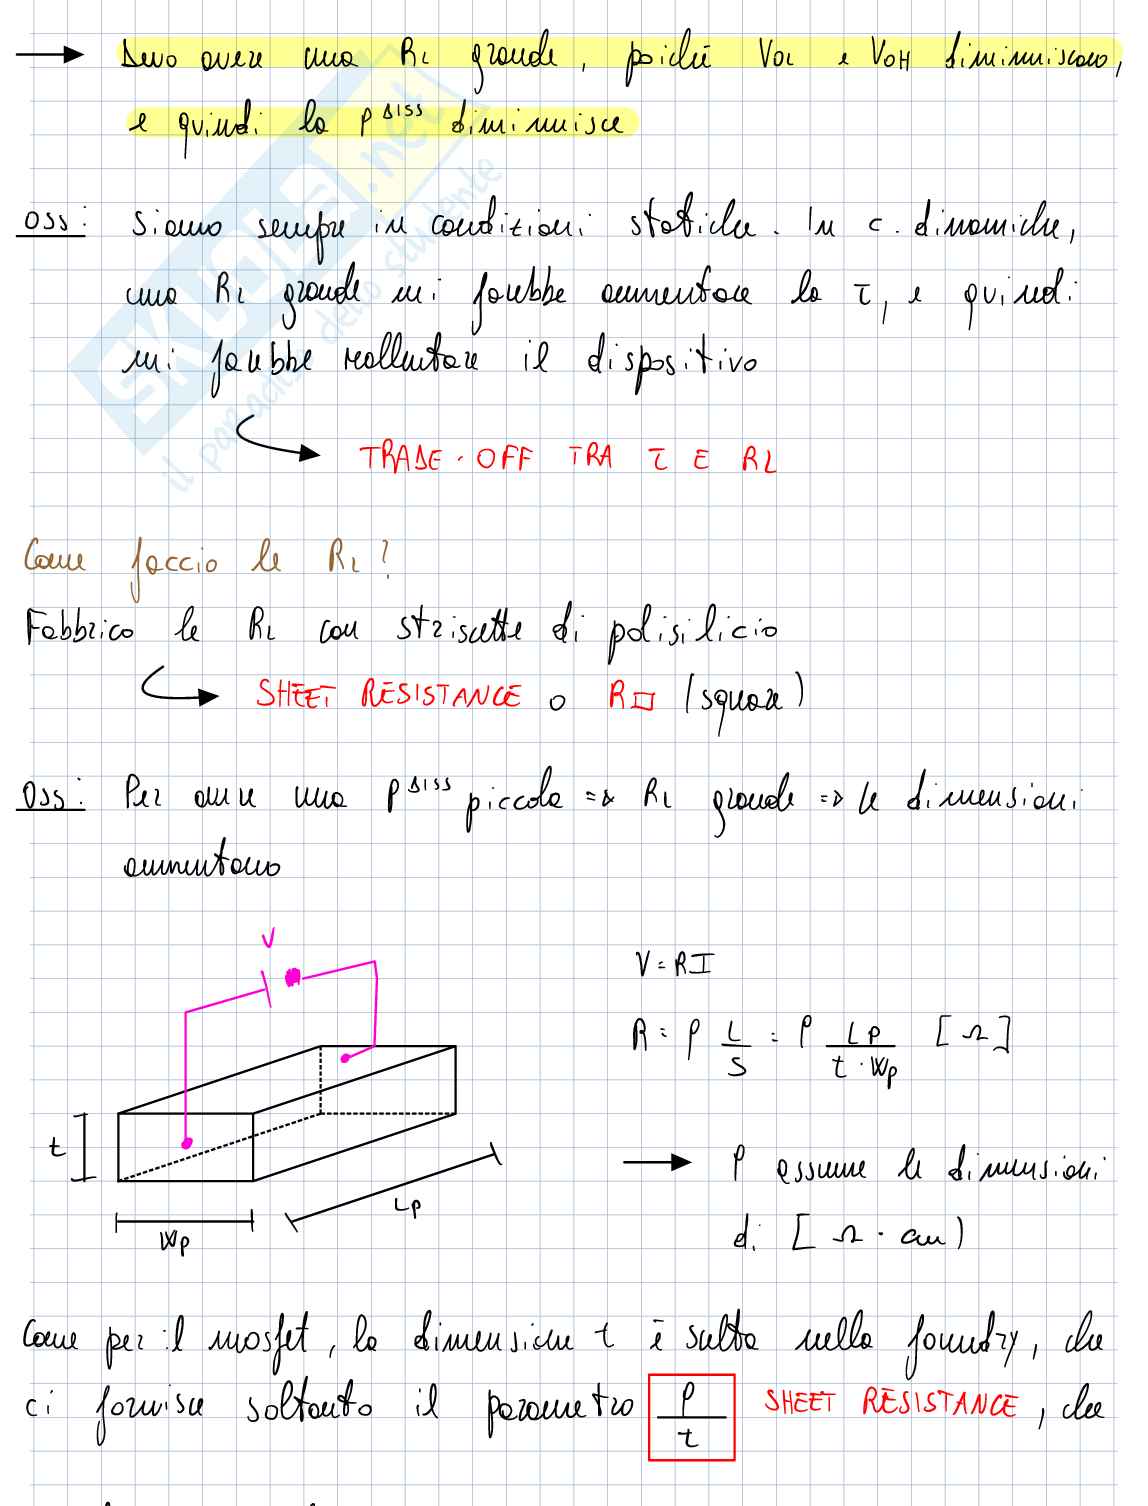 Devo avere una RL grande, poiché VOL e VOH diminuiscono,
e quindi la P^DISS diminuisce
OSS: Siamo sempre in condizioni statiche. In c. dinamiche,
una RL grande mi farebbe aumentare la τ, e quindi
mi farebbe rallentare il dispositivo
TRADE-OFF TRA τ E RL
Come faccio le RL?
Fabbrico le RL con striscette di polisilicio
SHEET RESISTANCE o R□ (square)
OSS: Per avere una P^DISS piccola => RL grande => le dimensioni
aumentano
V
V = RI
R = ρ L/S = ρ Lp/(t · Wp) [Ω]
t
Wp
Lp
→ ρ assume le dimensioni
di [Ω · cm)
Come per il mosfet, la dimensione t è scelta nella foundry, che
ci fornisce soltanto il parametro ρ/t SHEET RESISTANCE, che
SKUOLA.net
il paradiso dello studente